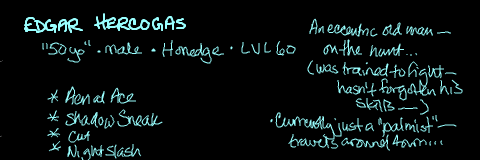 EDGAR HERCOGAS
"50yo" • male • Honedge • LVL 60
* Aerial Ace
* Shadow Sneak
* Cut
* Night Slash
An eccentric old man —
on the hunt...
(was trained to fight —
hasn't forgotten his
skills —)
• Currently just a "palmist" —
travels around town...